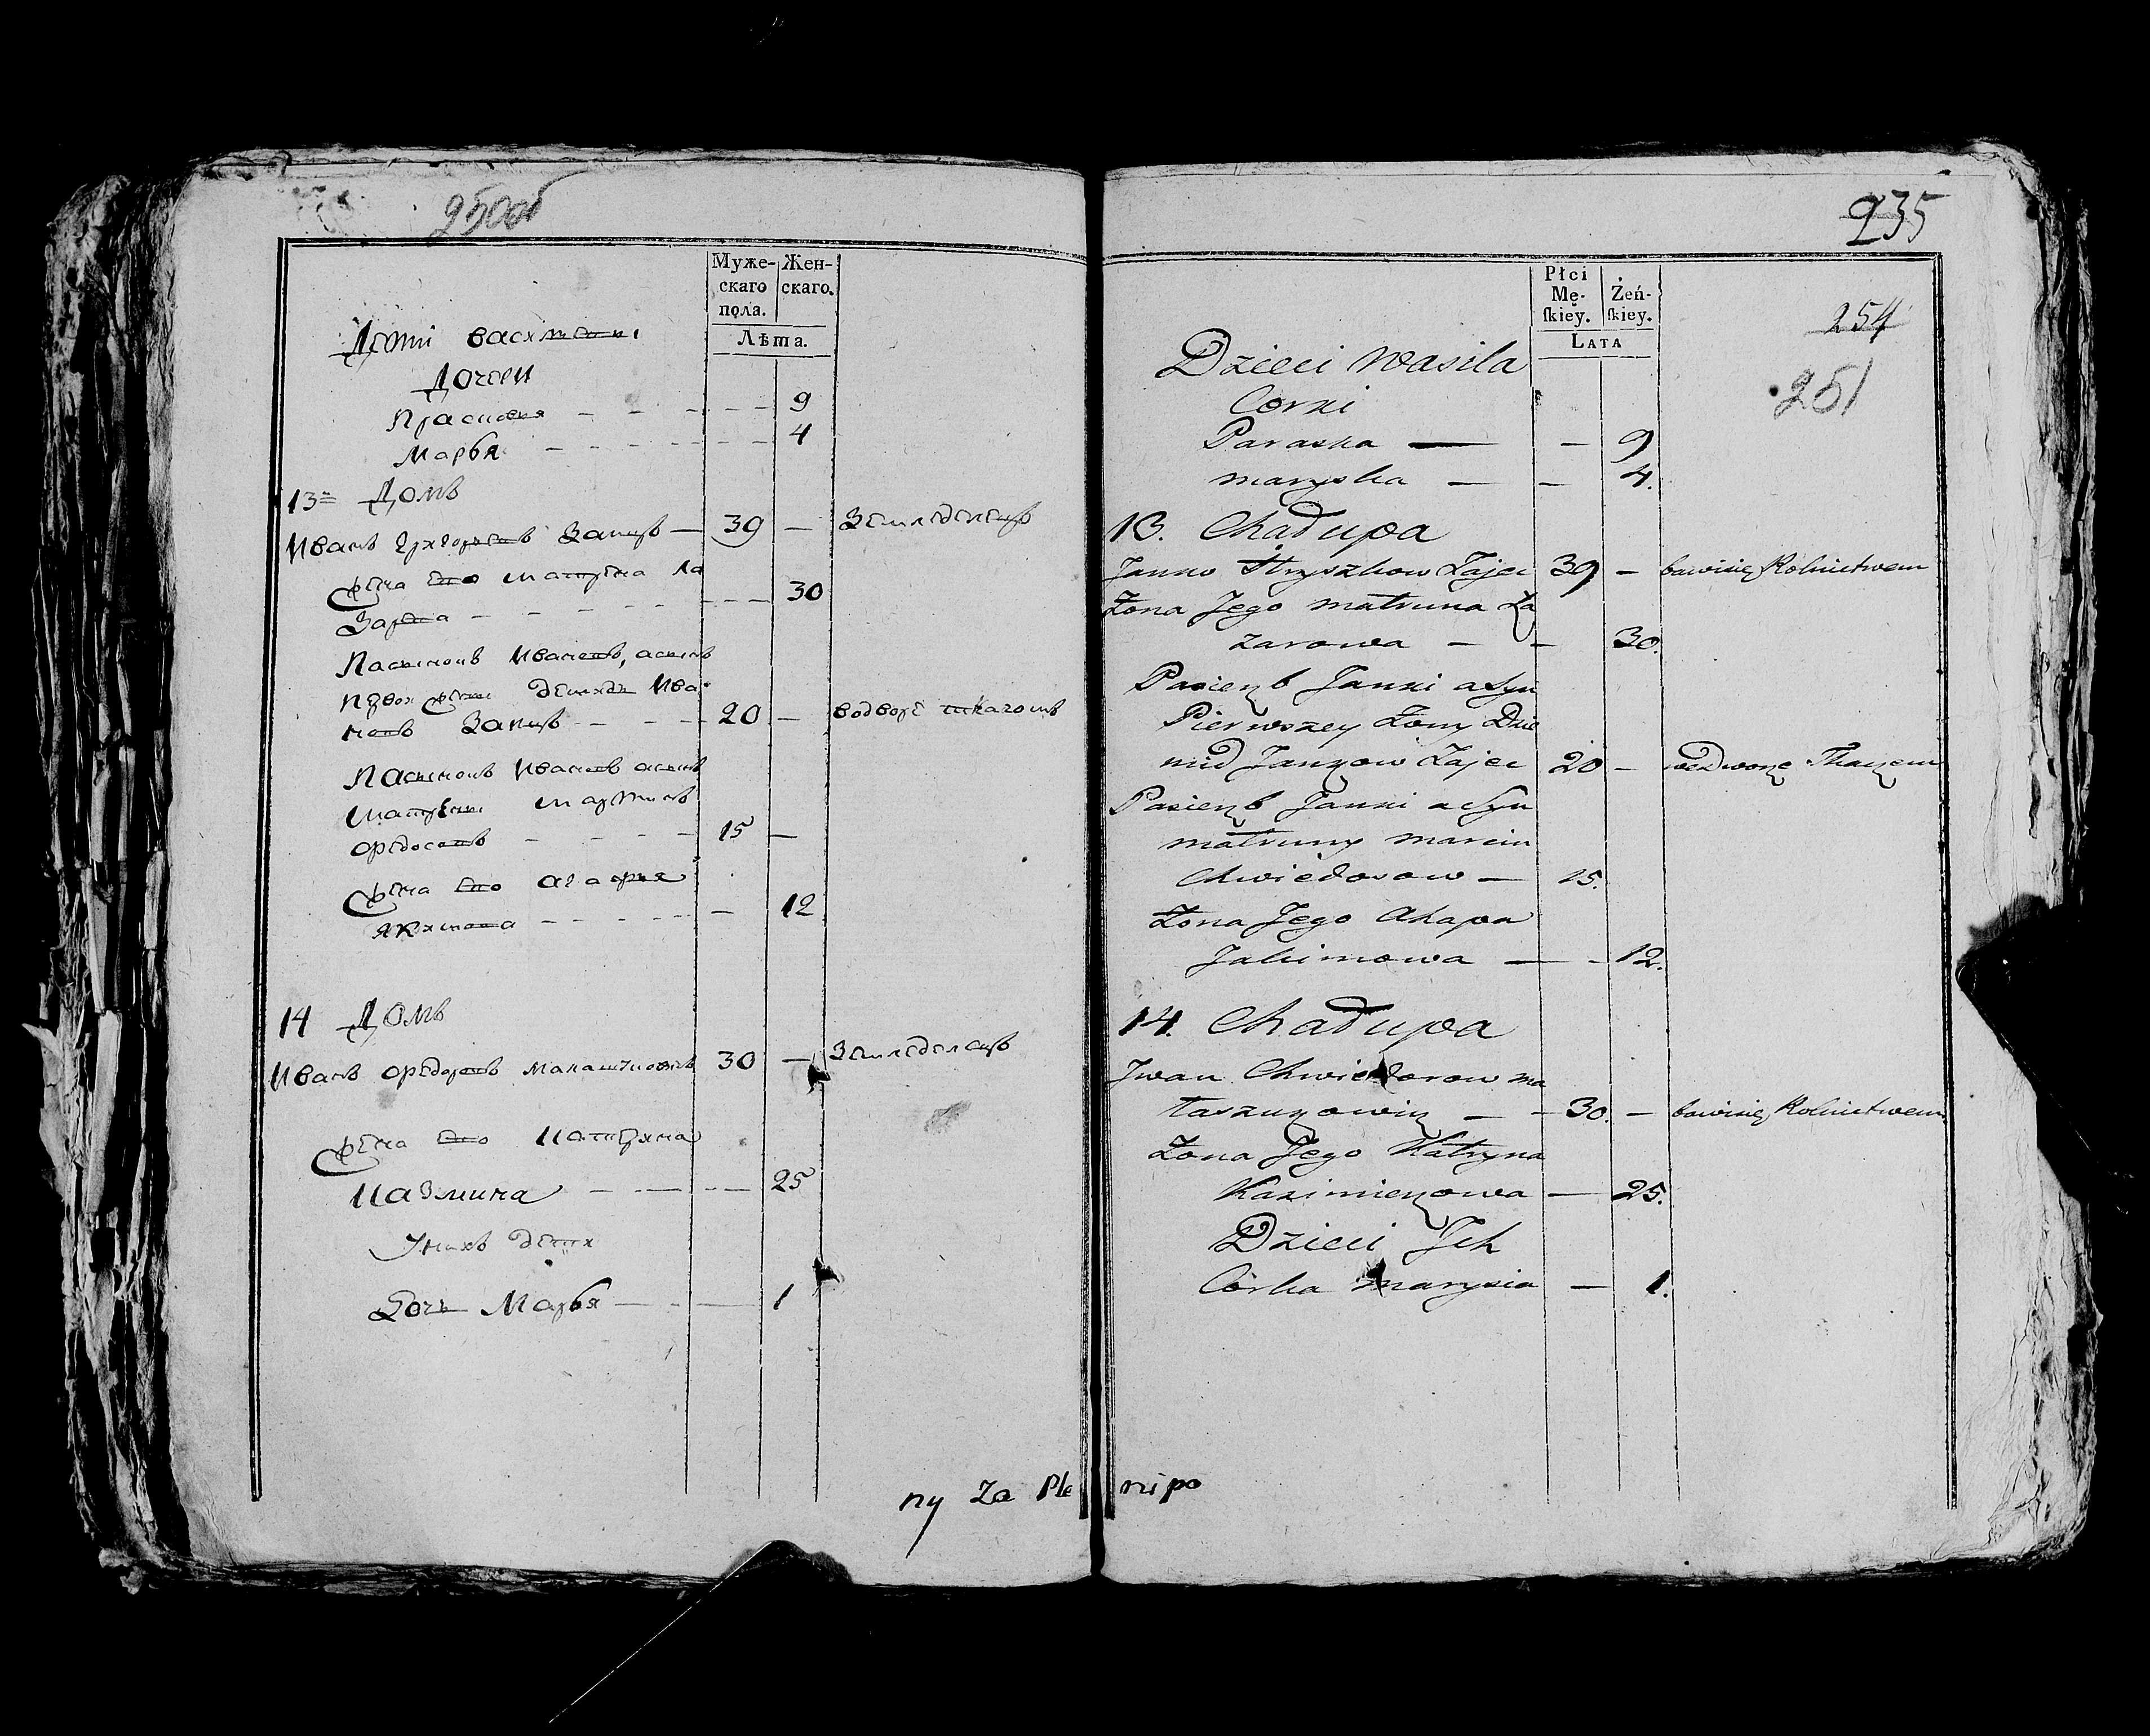 250об
Муже- Жен-
скаго скаго.
пола.
Лѣта.
Дети Василевы
Дочери
Прасковя - - - 9
Марья - - - 4
13 Домъ
Иванъ Григорьевъ Заицъ — 39 — Земледелецъ
Жена Ево Матрена Ла
Зарева - - - 30
Пасынокъ Ивановъ, асынъ
Первои Жены Демидъ Ива
новъ Заицъ - - - 20 — водворе ткачомъ
Пасынокъ Ивановъ асынъ
Матрены Мартинъ
Федосовъ - - - 15 —
Жена Ево Агафия
Якимова - - - 12
14 Домъ
Иванъ Федоровъ 30 — Земледелецъ
Жена Ево Катрина
Казмина - - - 25
Унихъ дети
Дочь Марья — 1
ny Za Ple
235
Płci
Mę- Żeń-
ſkiey. ſkiey.
LATA
254
251
Dzieci Wasila
Corki
Paraska — — 9
Maryska — — 4.
13. Chałupa
Janko Hryszkow Zajec 39 — bawisię Rolnictwem
Zona Jego Matruna Ła
zarowa — — 30.
Pasierzb Janki a Syn
Pierwszey Zony Dzie
mid Jankow Zajec 20 — wedworze Tkaczem
Pasierzb Janki a Syn
Matruny Marcin
Chwiedosow — 15.
Zona Jego Ahapa
Jakimowa — - 12.
14. Chałupa
Iwan Chwiedorow Ma
— - 30. — bawisię Rolnictwem
Zona Jego Katryna
Kazimierzowa — 25.
Dzieci Ich
Córka Marysia — 1.
nipo